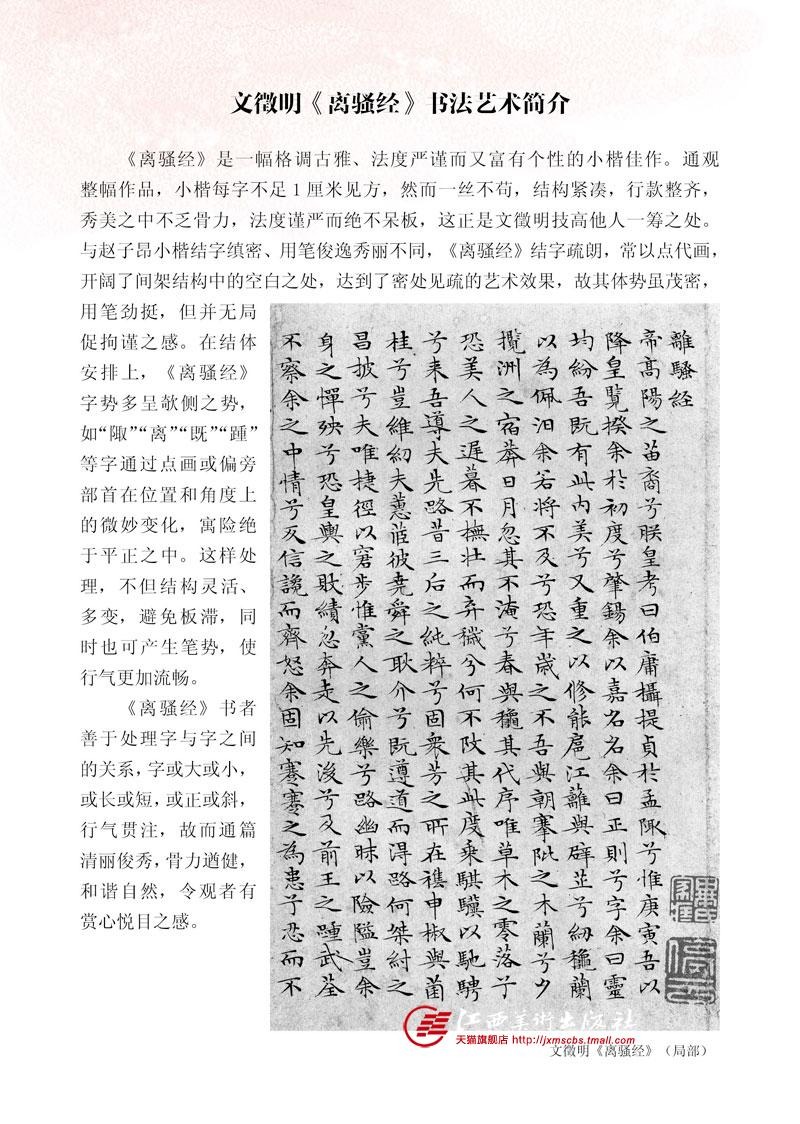 文徵明《离骚经》书法艺术简介
《离骚经》是一幅格调古雅、法度严谨而又富有个性的小楷佳作。通观
整幅作品，小楷每字不足 1 厘米见方，然而一丝不苟，结构紧凑，行款整齐，
秀美之中不乏骨力，法度谨严而绝不呆板，这正是文徵明技高他人一筹之处。
与赵子昂小楷结字缜密、用笔俊逸秀丽不同，《离骚经》结字疏朗，常以点代画，
开阔了间架结构中的空白之处，达到了密处见疏的艺术效果，故其体势虽茂密，
用笔劲挺，但并无局
促拘谨之感。在结体
安排上，《离骚经》
字势多呈欹侧之势，
如“陬”“离”“既”“踵”
等字通过点画或偏旁
部首在位置和角度上
的微妙变化，寓险绝
于平正之中。这样处
理，不但结构灵活、
多变，避免板滞，同
时也可产生笔势，使
行气更加流畅。
《离骚经》书者
善于处理字与字之间
的关系，字或大或小，
或长或短，或正或斜，
行气贯注，故而通篇
清丽俊秀，骨力遒健，
和谐自然，令观者有
赏心悦目之感。
離騷經
帝高陽之苗裔兮朕皇考曰伯庸攝提貞於孟陬兮惟庚寅吾以
降皇覽揆余於初度兮肇錫余以嘉名名余曰正則兮字余曰靈
均紛吾既有此内美兮又重之以修能扈江蘺與辟芷兮紉穐蘭
以為佩汨余若將不及兮恐年歲之不吾與朝搴阰之木蘭兮夕
攬洲之宿莽日月忽其不淹兮春與穐其代序唯草木之零落兮
恐美人之遲暮不撫壯而棄穢兮何不改其此度乘騏驥以馳騁
兮来吾導夫先路昔三后之純粹兮固衆芳之所在襍申椒與菌
桂兮豈維紉夫蕙茝彼堯舜之耿介兮既遵道而得路何桀紂之
昌披兮夫唯捷徑以窘步惟黨人之偷樂兮路幽昧以險隘豈余
身之憚殃兮恐皇輿之敗績忽奔走以先後兮及前王之踵武荃
不察余之中情兮反信讒而齊怒余固知謇謇之為患兮忍而不
江西美術出版社
天猫旗舰店 http://jxmscbs.tmall.com
文徵明《离骚经》（局部）